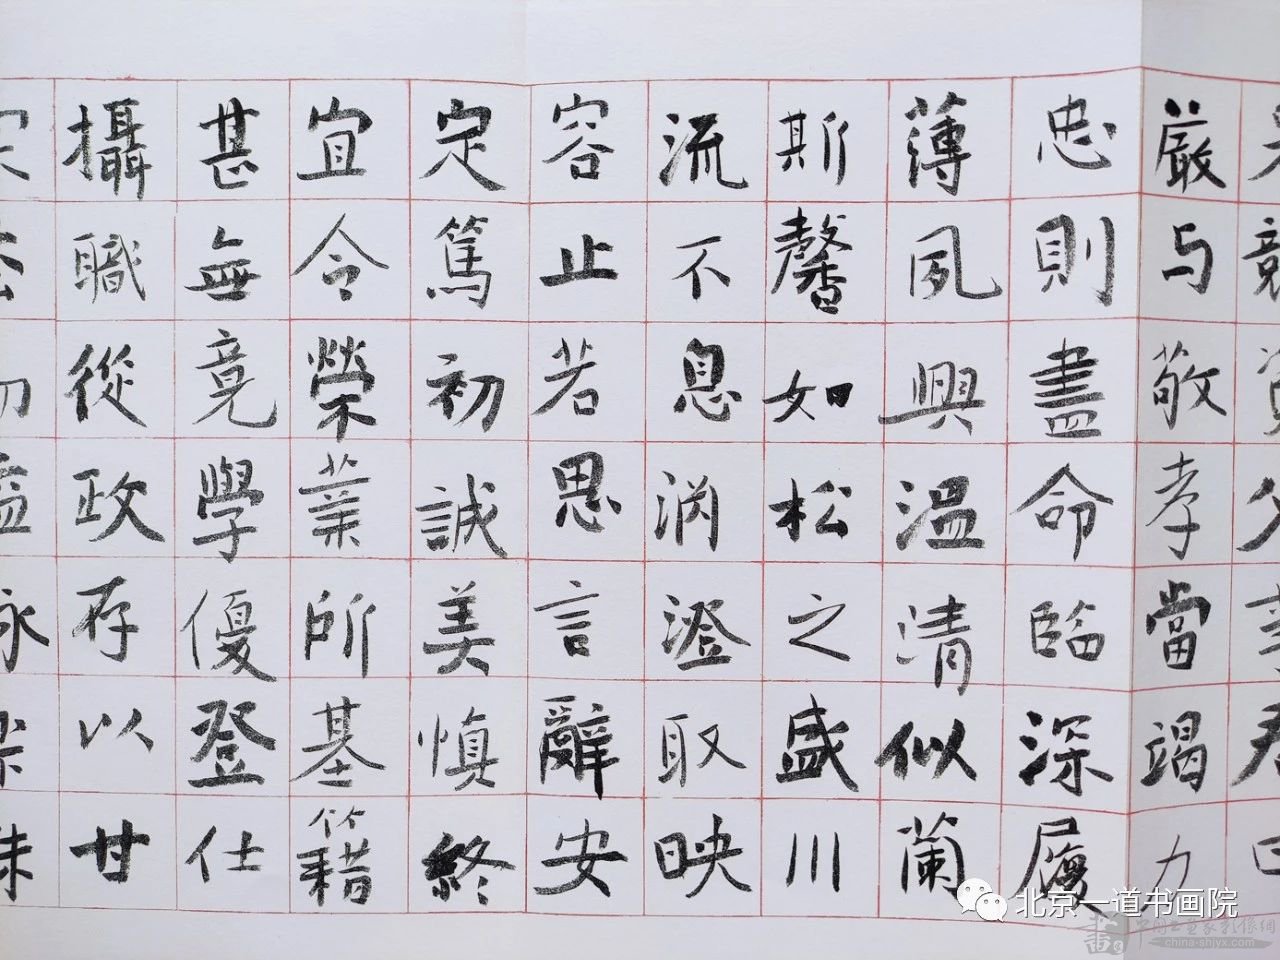 是競資父事君曰
嚴与敬孝當竭力
忠則盡命臨深履
薄夙興溫清似蘭
斯馨如松之盛川
流不息渊澄取映
容止若思言辭安
定篤初誠美慎終
宜令榮業所基籍
甚無竟學優登仕
攝職從政存以甘
益詠樂殊
北京一道书画院
china-shjyx.com